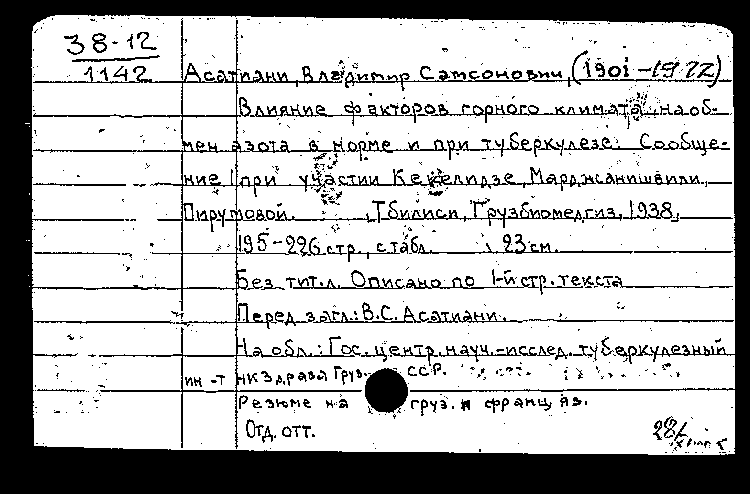 38-12
1142
Асатиани, Владимир Самсонович, (1901-1922)
Влияние факторов горного климата на об-
мен азота в норме и при туберкулезе: Сообще-
ние при участии Кекелидзе, Марджанишвили,
Пирумовой. Тбилиси, Грузбиомедгиз, 1938,
195-226 стр., с табл. 23 см.
Без тит.л. Описано по 1-й стр. текста
Перед загл.: В.С. Асатиани.
На обл.: Гос. центр. науч.-исслед. туберкулезный
ин-т НКЗдрава Груз. ССР.
Резюме на груз. и франц. яз.
Отд. отт.